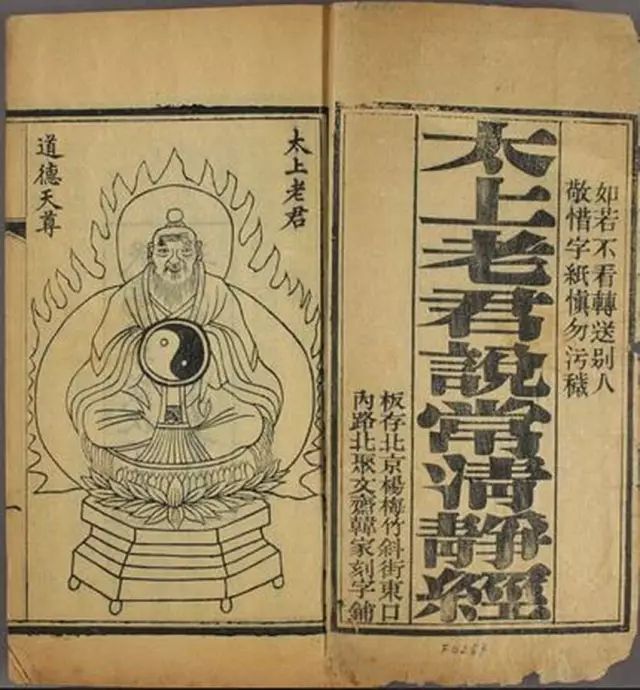 如若不看轉送别人
敬惜字紙慎勿污穢
太上老君說常清靜經
板存北京楊梅竹斜街東口
內路北聚文齋韓家刻字鋪
太上老君
道德天尊
一